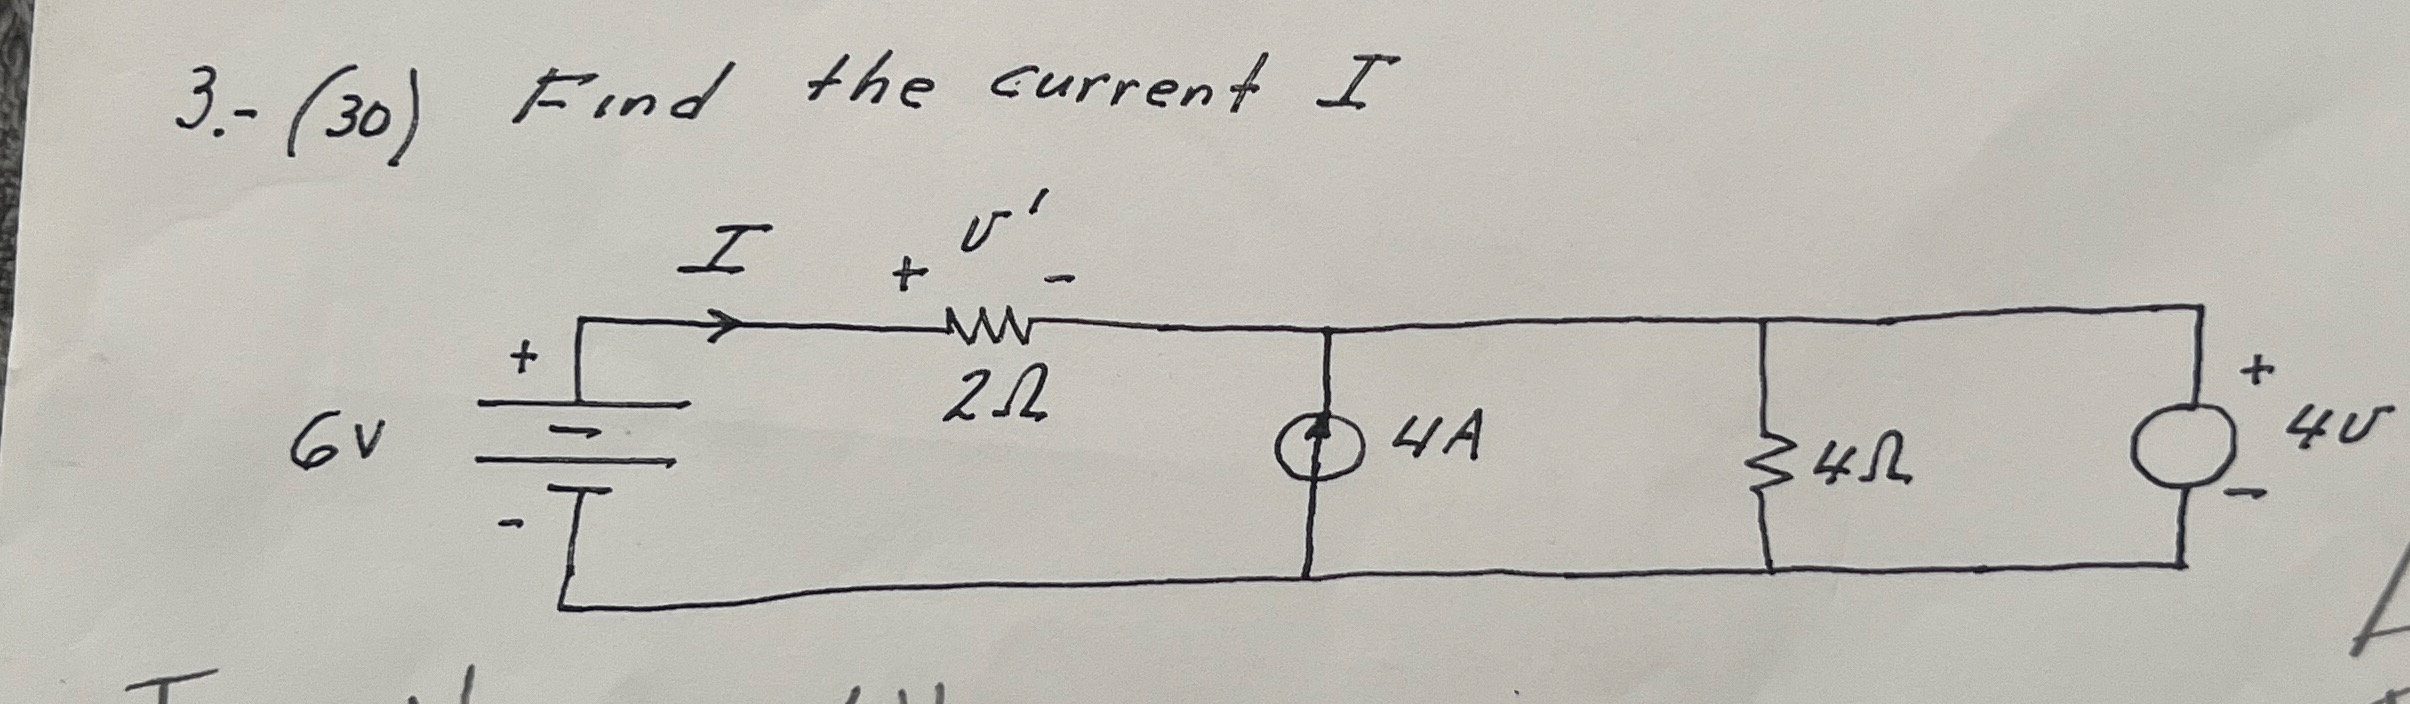 3.- (30) Find the current I
I
+ v' -
2Ω
+
6V
-
4A
4Ω
+
4v
-